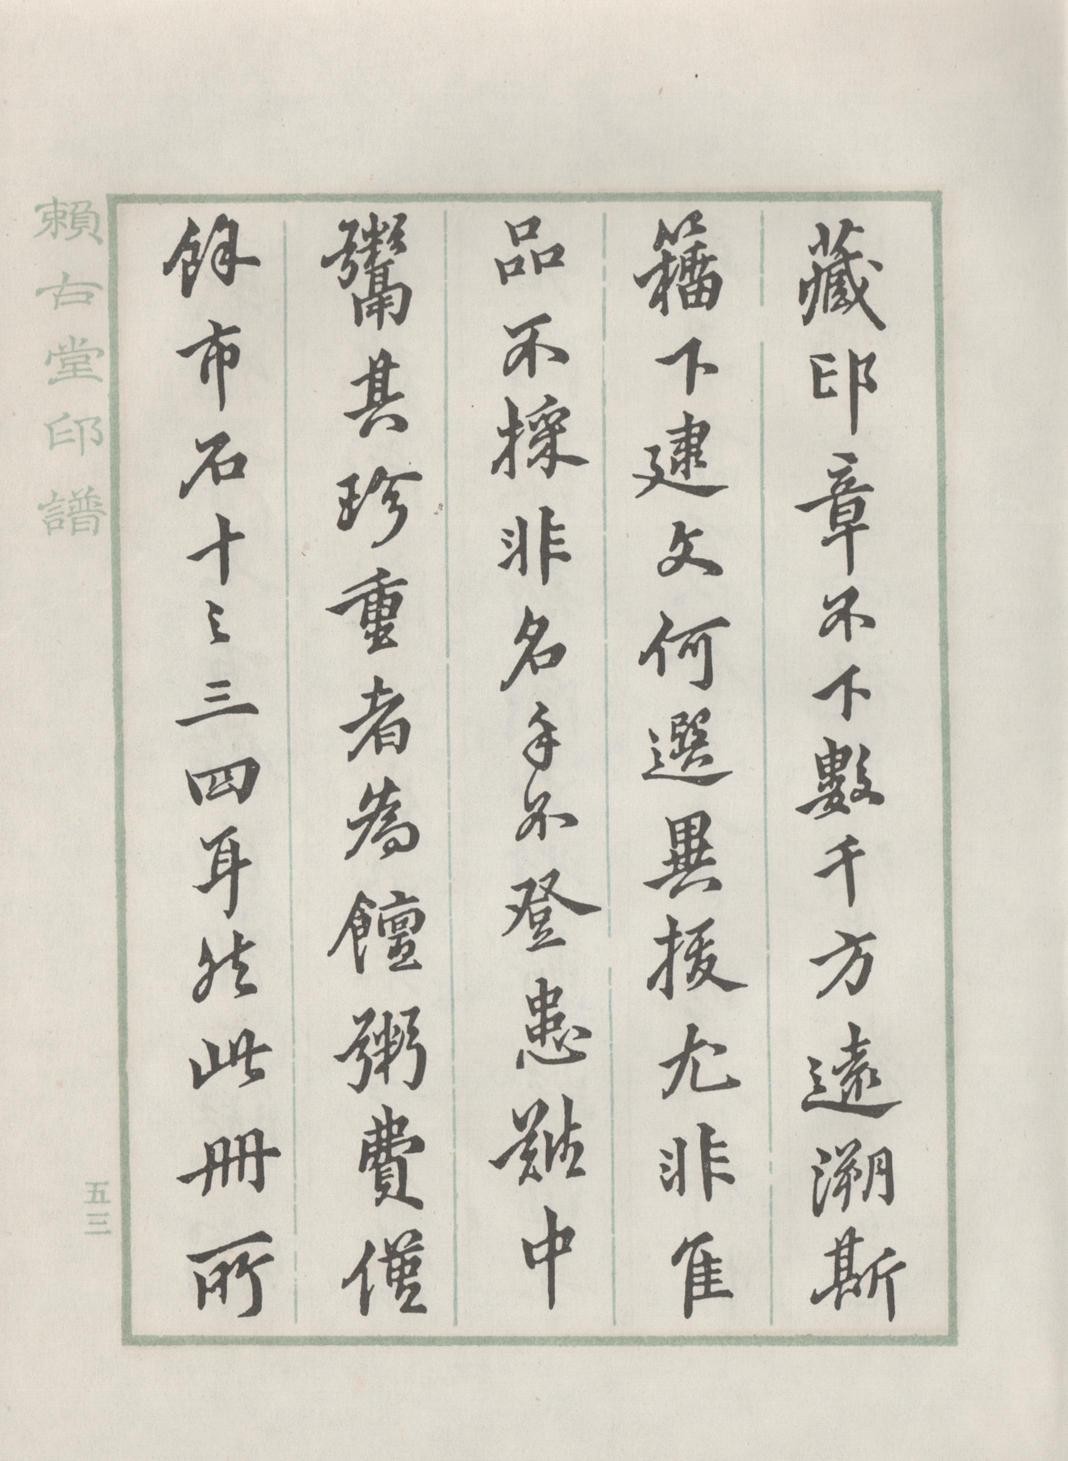 藏印章不下數千方遠溯斯
籀下建文何選異拔尤非佳
品不採非名手不登患難中
鬻其珍重者為饘粥費僅
餘市石十之三四耳然此冊所
賴古堂印譜
五三